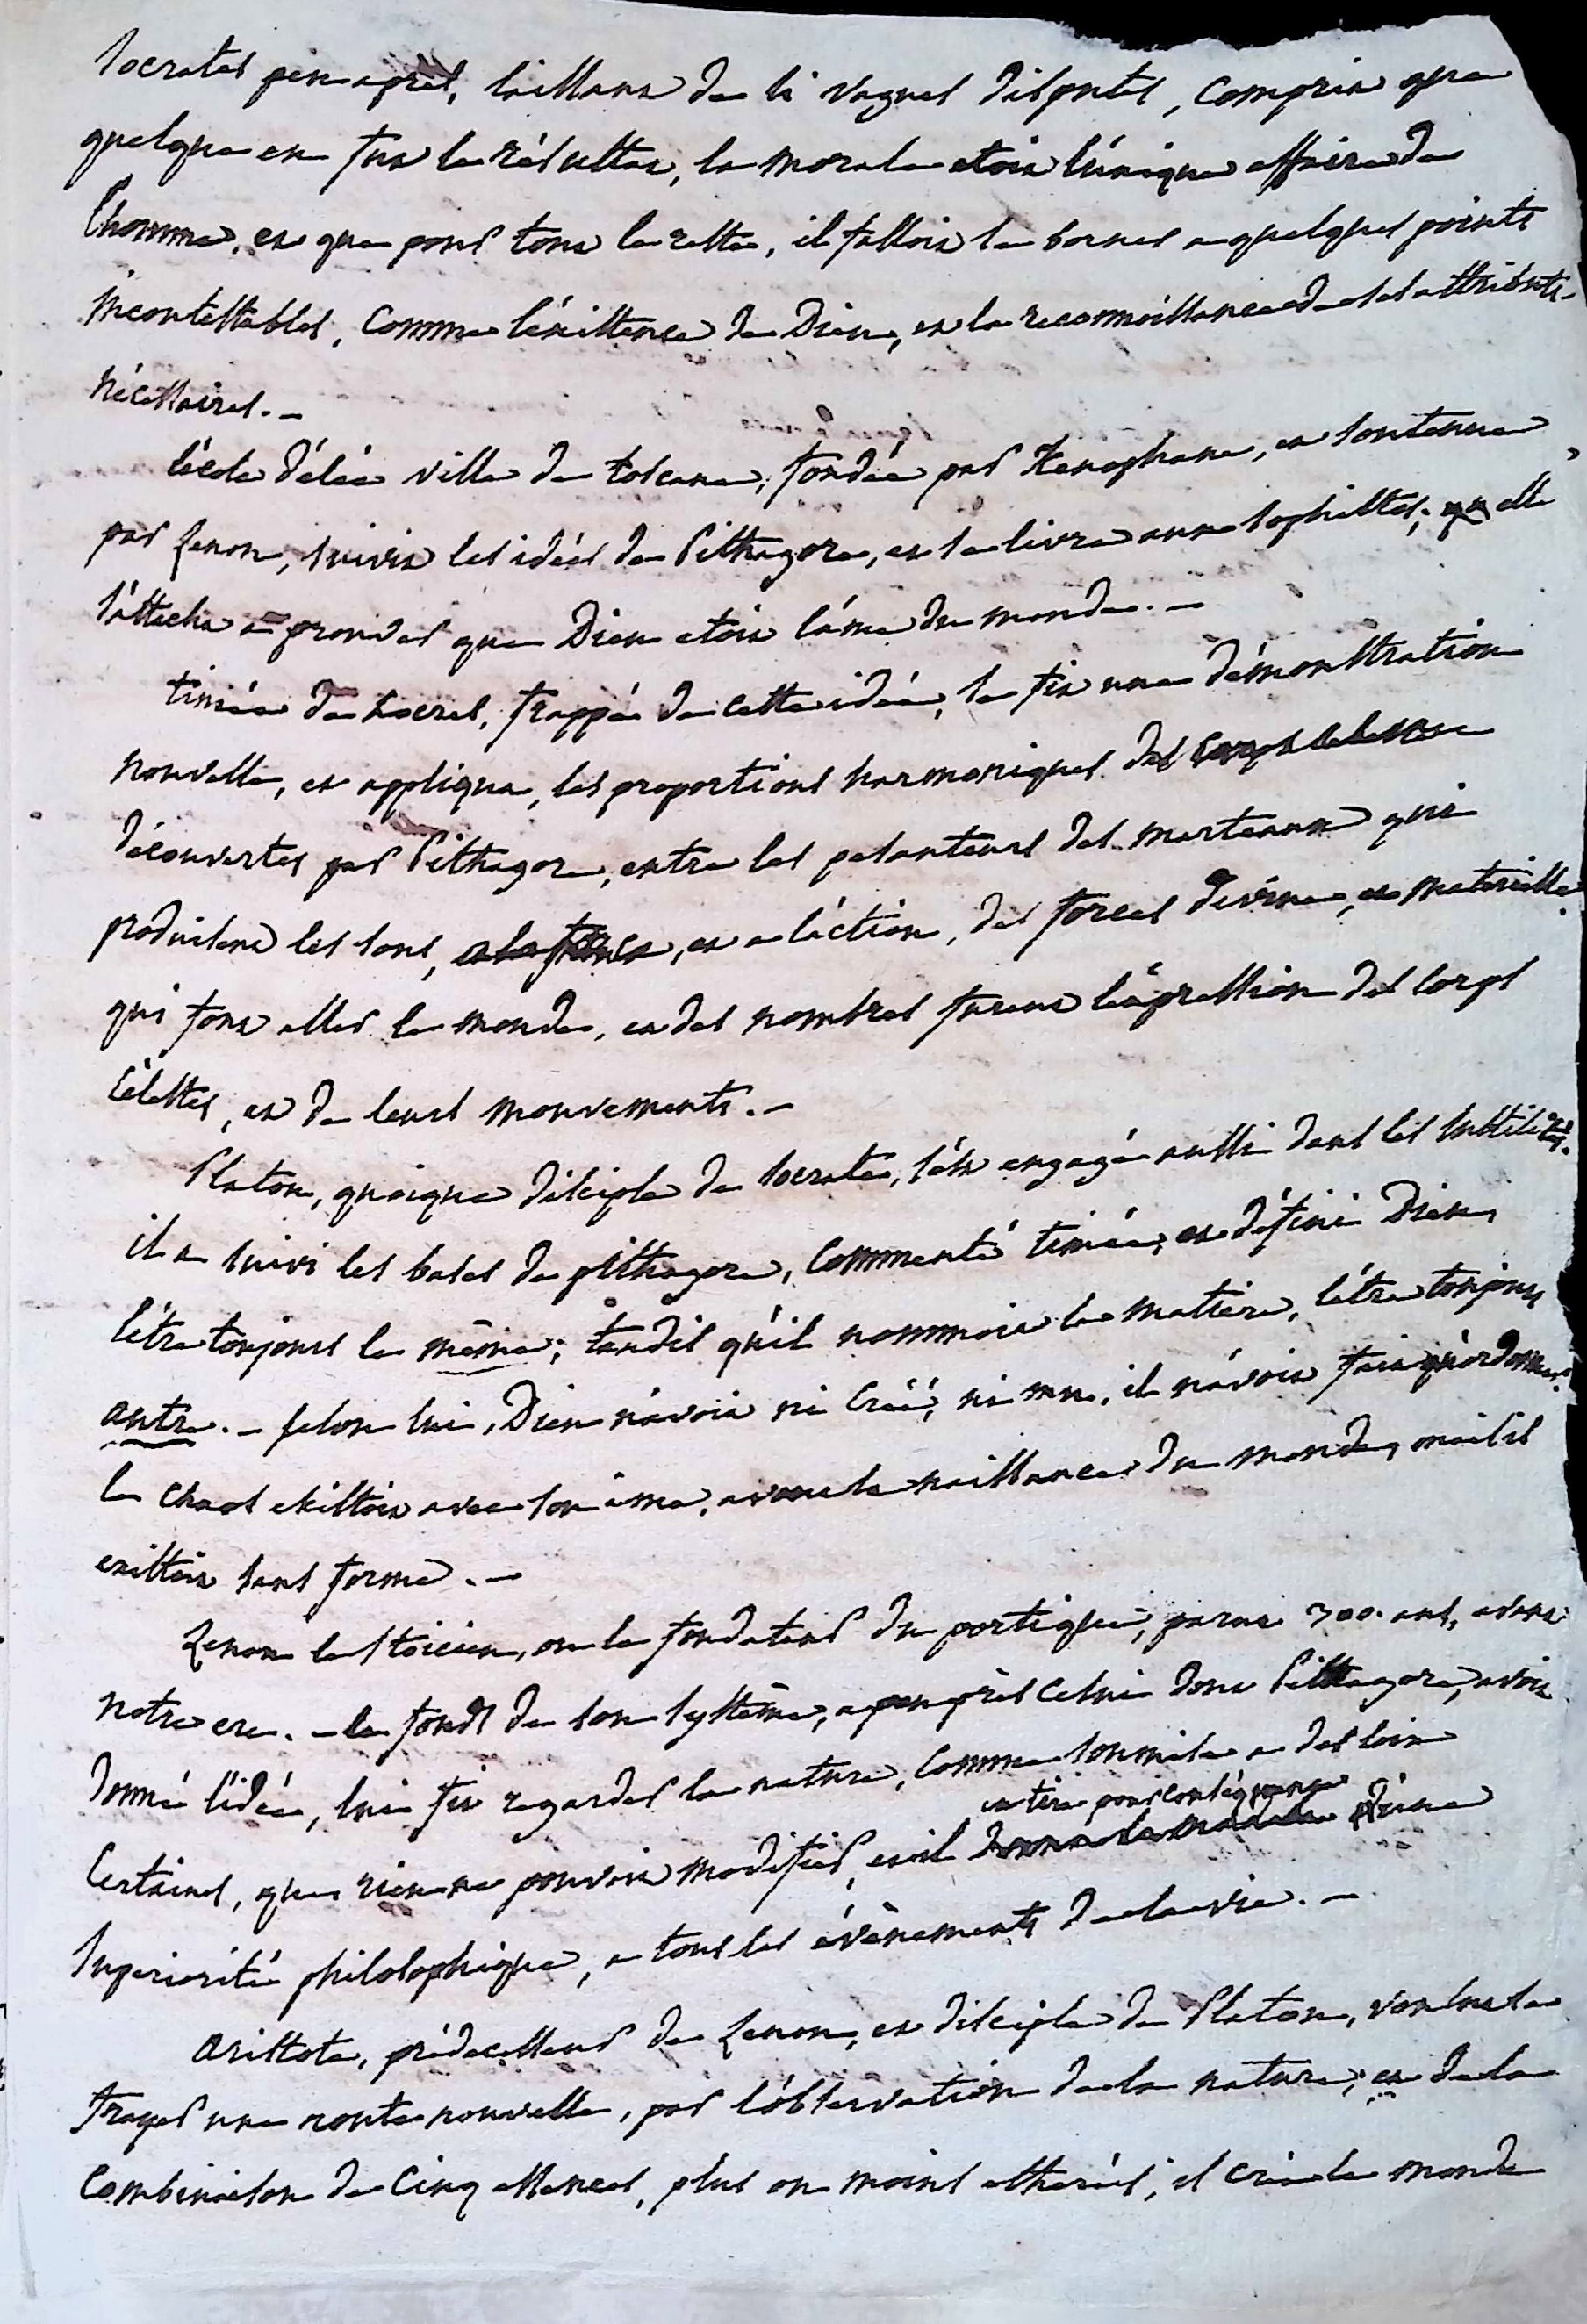 Socrates peu après, laissant de si vagues disputes, comprit que
quelqu'en fut le résultat, la morale etoit l'unique affaire de
l'homme, et que pour tout le reste, il falloit se borner a quelques points
incontestables, comme l'éxistence de Dieu, et la reconnoissance de ses attributs
nécessaires. —
l'école d'élée ville de toscane, fondée par Xenophane, et soutenue
par Zenon, suivit les idées de Pithagore, et se livra aux sophistes; elle
s'attacha a prouver que Dieu etoit l'âme du monde. —
timée de Locres, frappé de cette idée, se fit une démonstration
nouvelle, et appliqua, les proportions harmoniques des corps celestes
découvertes par Pithagore, entre les pesanteurs des marteaux qui
produisent les sons, et a l'action, des forces divine, et materielle
qui font aller le monde, et des nombres furent l'expression des corps
célestes, et de leurs mouvements. —
Platon, quoique disciple de Socrate, s'est engagé aussi dans les subtilités.
il a suivi les bases de pithagore, commenté timée, et défini Dieu,
l'étre toujours le même; tandis qu'il nommoit la matière, l'étre toujours
autre. — selon lui, Dieu n'avoit ni créé, ni mu, il n'avoit fait qu'ordonner.
le chaos existoit avec son âme, avant la naissance du monde, mais il
existoit sans forme. —
Zenon le Stoicien, ou le fondateur du portique, parut 300 ans, avant
notre ere. — le fonds de son systême, a peu près celui dont Pithagore, avoit
donné l'idée, lui fit regarder la nature, comme soumise a des loix
certaines, que rien ne pouvoit modifier, et il en tira pour conséquence d'une
superiorité philosophique, a tous les évènements de la vie. —
Aristote, prédecesseur de Zenon, et disciple de Platon, voulut se
frayer une route nouvelle, par l'observation de la nature; et de la
combinaison de cinq essences, plus ou moins etherées, il créa le monde